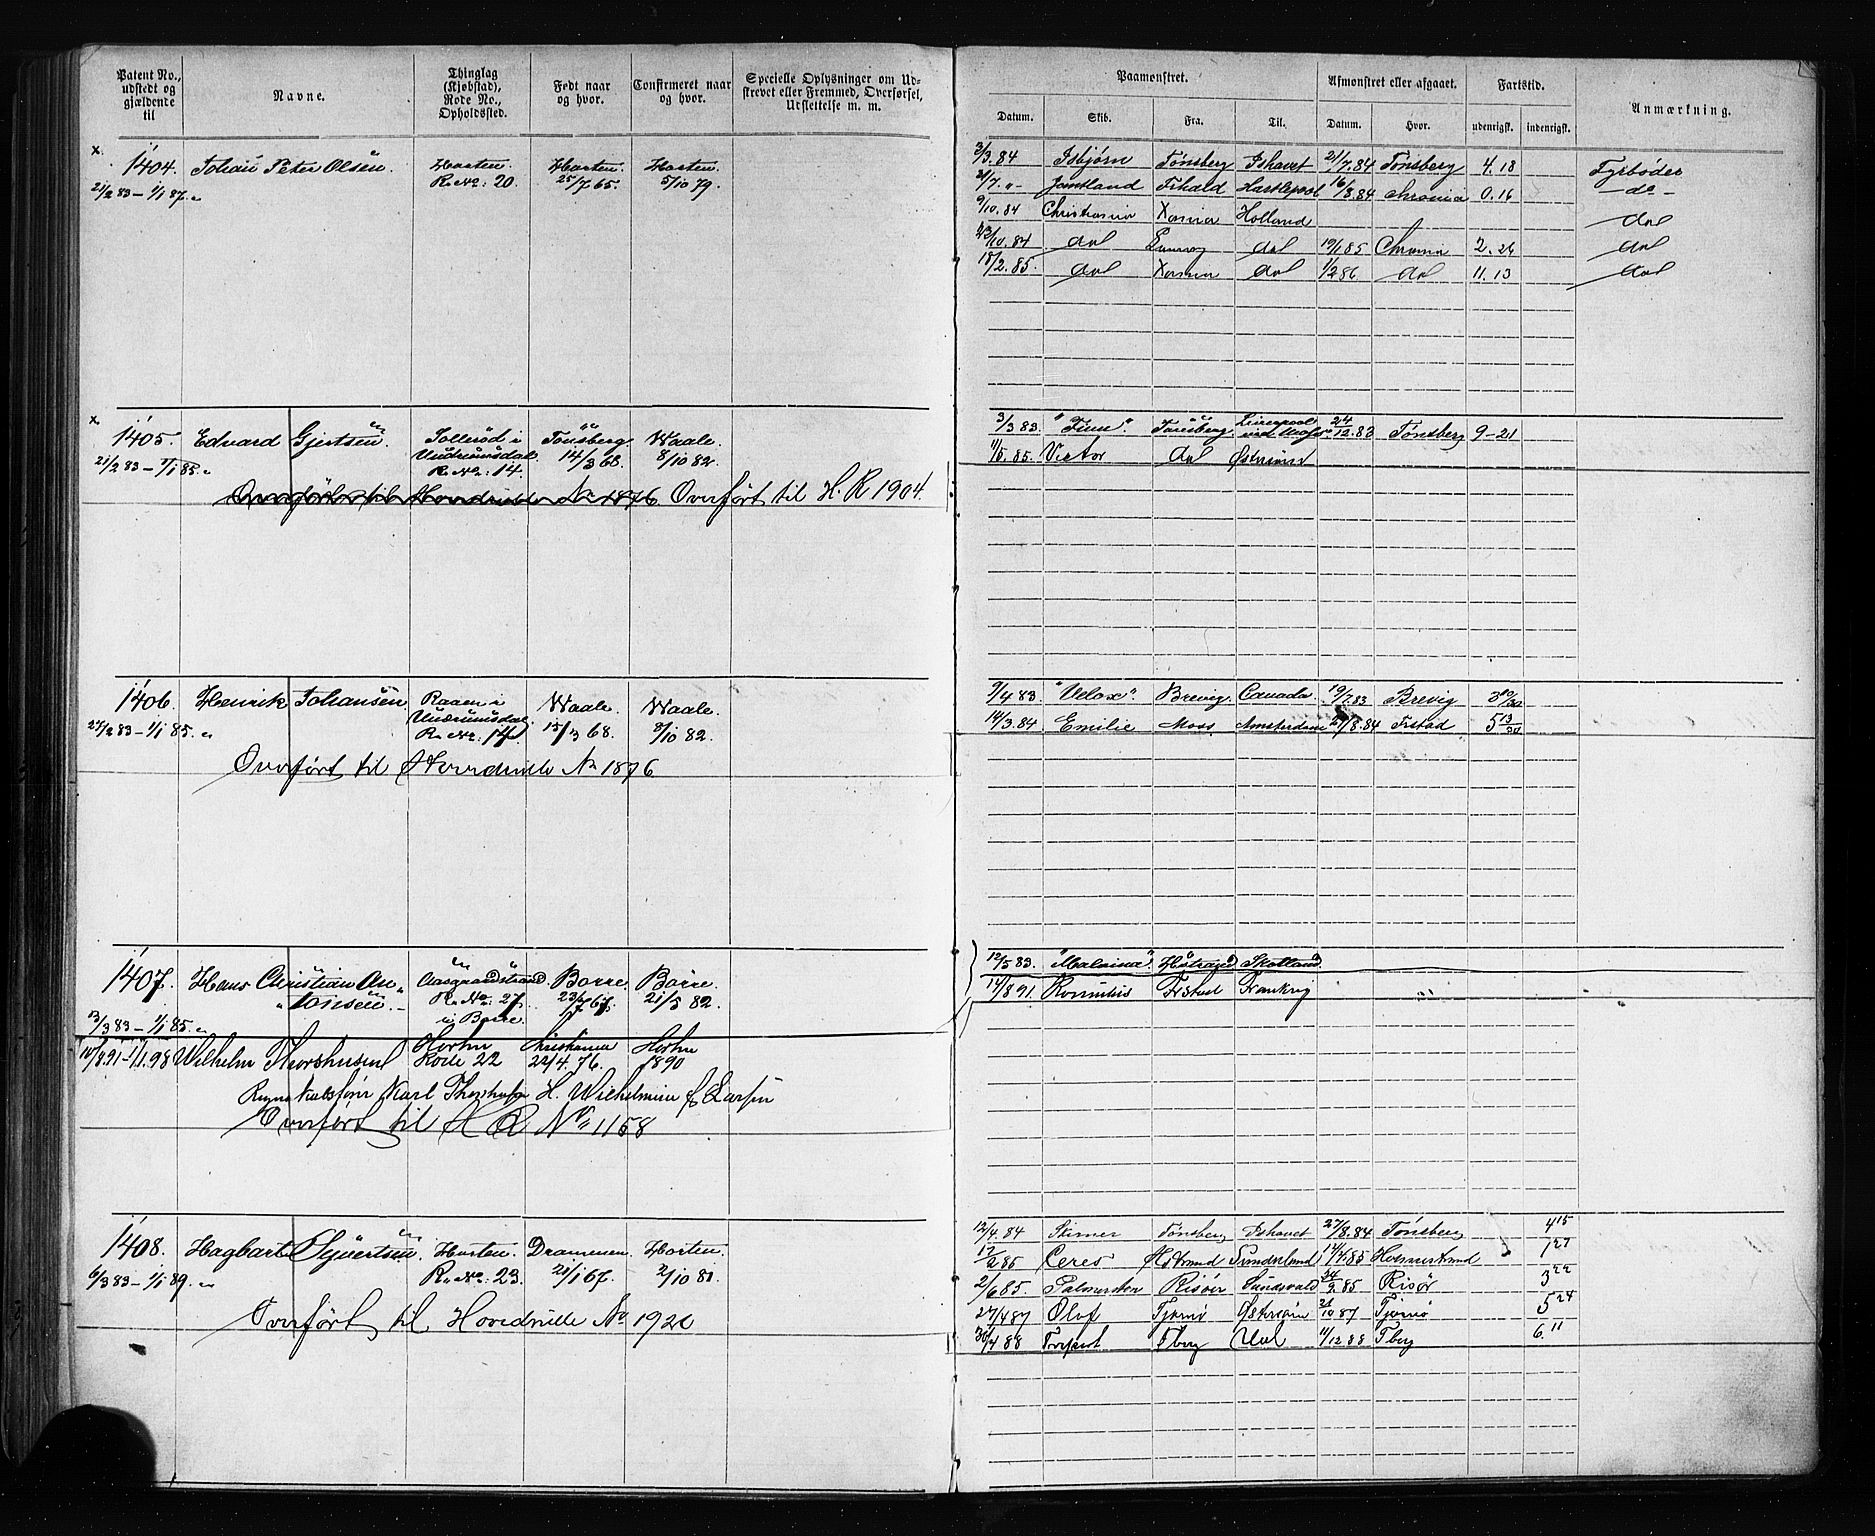 Patent No., udstedt og gjældende til
Navne.
Thinglag (Kjøbstad), Rode No., Opholdssted.
Født naar og hvor.
Confirmeret naar og hvor.
Specielle Oplysninger om Udskrevet eller Fremmed, Overførsel, Udslettelse m. m.
Paamønstret.
Afmønstret eller afgaaet.
Fartstid.
Anmærkning.
Datum. Skib. Fra. Til. Datum. Hvor. udenrigsk. indenrigsk.
x
1404. Johan Peter Olsen. Horten. Horten. Horten.
21/2 83 – 1/1 87. R. No: 20. 25/7 65. 5/10 79.
3/3. 84 Isbjørn Tønsberg Ishavet 21/7. 84 Tønsberg 4. 18 Fyrbøder
21/7. "- Jamtland Frhald Hartlepool 16/8. 84 Chrania 0. 16 do -
9/10. 84 Christiania Xania Holland do
23/10. 84 do do 19/1 85 Chrania 2. 26 do
18/2. 85. do Xania do 1/2 86 do 11. 13 do
x
1405. Edvard Gjertsen. Sollerød i Tønsberg Waale.
21/2 83 – 1/1 85. Undrumsdal. 14/3 68. 8/10 82.
R. No: 14.
Overført til Hovedrulle No 1876. Overført til H. R 1904.
3/3 83. Tønsberg. Liverpool 24/12. 83 Tønsberg 9–21
11/5. 85. Victor do Østersøen
1406. Henrik Johansen Raaen i Waale. Waale.
27/2 83 – 1/1 85. Undrumsdal. 15/3 68. 8/10 82.
R. No: 14.
Overført til Hovedrulle No 1876
9/4 83. "Velox" Brevig. Canada. 19/7. 83 Brevig 3 19/30
14/3. 84 Emilie Moss Amsterdam 27/8. 84 Frstad 5 13/30
1407. Hans Christian An- Aasgaardstrand Borre Borre.
tonsen. R. No: 27. 23/7 67. 21/5 82.
13/3 83 – 1/1 85. i Borre.
12/5 83. "Malvina". Hstrand Skotland.
14/8 91. Romulus Frstad Frankrig
10/8. 91 – 1/1. 98 Wilhelm Thorshusen Horten Christiania Horten
Rode 22 22/4. 76. 1890
Karl H. Wilhelmine f Larsen
Overført til H R No 1158
1408. Hagbart Syvertsen. Horten. Drammen. Horten.
6/3 83 – 1/1 89. R. No: 23. 21/1 67. 2/10 81.
Overført til Hovedrulle No
12/4. 84 Skirner Tønsberg Ishavet 27/8. 84 Tønsberg 4 15
17/2 85 Ceres Hstrand Sunderland 14/4 85 Holmestrand 1 27
2/6 85. Palmerston Risøer Sundsvald 24/9. 85 Risør 3 22
27/4 87 Olaf Tjømø Østersøen 21/10 87 Tjømø 5 24
30/4 88 Tberg 11/12 88 Tberg 6. 11